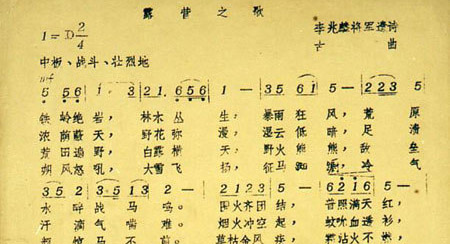 露营之歌
1=D 2/4
李兆麟将军遗诗
古 曲
中板、战斗、壮烈地
mf
5 56 1· 3 21. 656 1 - 35 61 5 - 2· 23 5
铁岭绝岩, 林木丛生, 暴雨狂风, 荒原
浓荫蔽天, 野花弥漫, 湿云低暗, 足渍
荒田遍野, 白露横天, 野火熊熊, 敌垒
朔风怒吼, 大雪飞扬, 征马踟蹰, 冷气
35 2 3513 2 - 1 23 5 - 6216 5
水畔战马鸣。 围火齐团结, 普照满天红,
汗滴气喘难。 烟火冲空起, 蚊吮血透衫,
马不